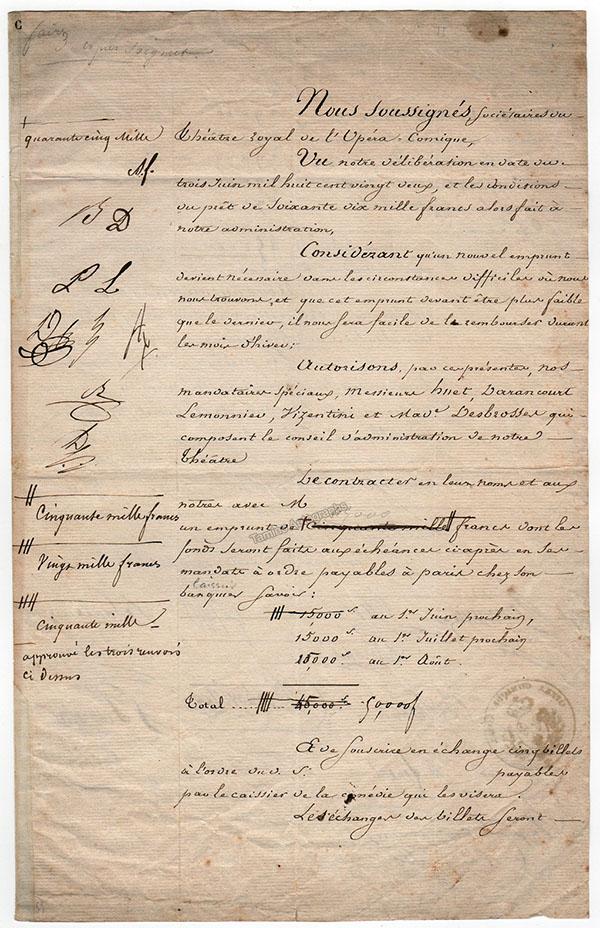 C
faire
Nous soussignés, sociétaires du
quarante cinq mille
théâtre royal de l'Opéra-Comique,
Vu notre délibération en date du
trois Juin mil huit cent vingt deux, et les conditions
du prêt de soixante dix mille francs alors fait à
notre administration,
B D
Considérant qu'un nouvel emprunt
P L
devient nécessaire dans les circonstances difficiles où nous
nous trouvons, et que cet emprunt devant être plus faible
que le dernier, il nous sera facile de le rembourser durant
les mois d'hiver;
Autorisons, par ces présentes, nos
mandataires spéciaux, Messieurs huet, Darancourt
Lemonnier, Vizentini et Mad.e Desbrosses qui
composent le conseil d'administration de notre
théâtre
De contracter en leurs noms et aux
notres avec M
Cinquante mille francs
un emprunt de cinquante mille francs dont les
fonds seront faits aux échéances ci après en ses
Vingt mille francs
mandats à ordre payables à paris chez son
caissier
banquier savoir:
cinquante mille
15000 f. au 1.er Juin prochain,
15,000 f. au 1.er Juillet prochain
approuvé les trois renvois
ci Dessus
15,000 f. au 1.er Août.
Total .... 45,000 f. 50,000 f
Et de souscrire en échange cinq billets
à l'ordre du d. S.r payables
par le caissier de la comédie qui les visera.
Les échanges des billets seront
Tamino Autographs